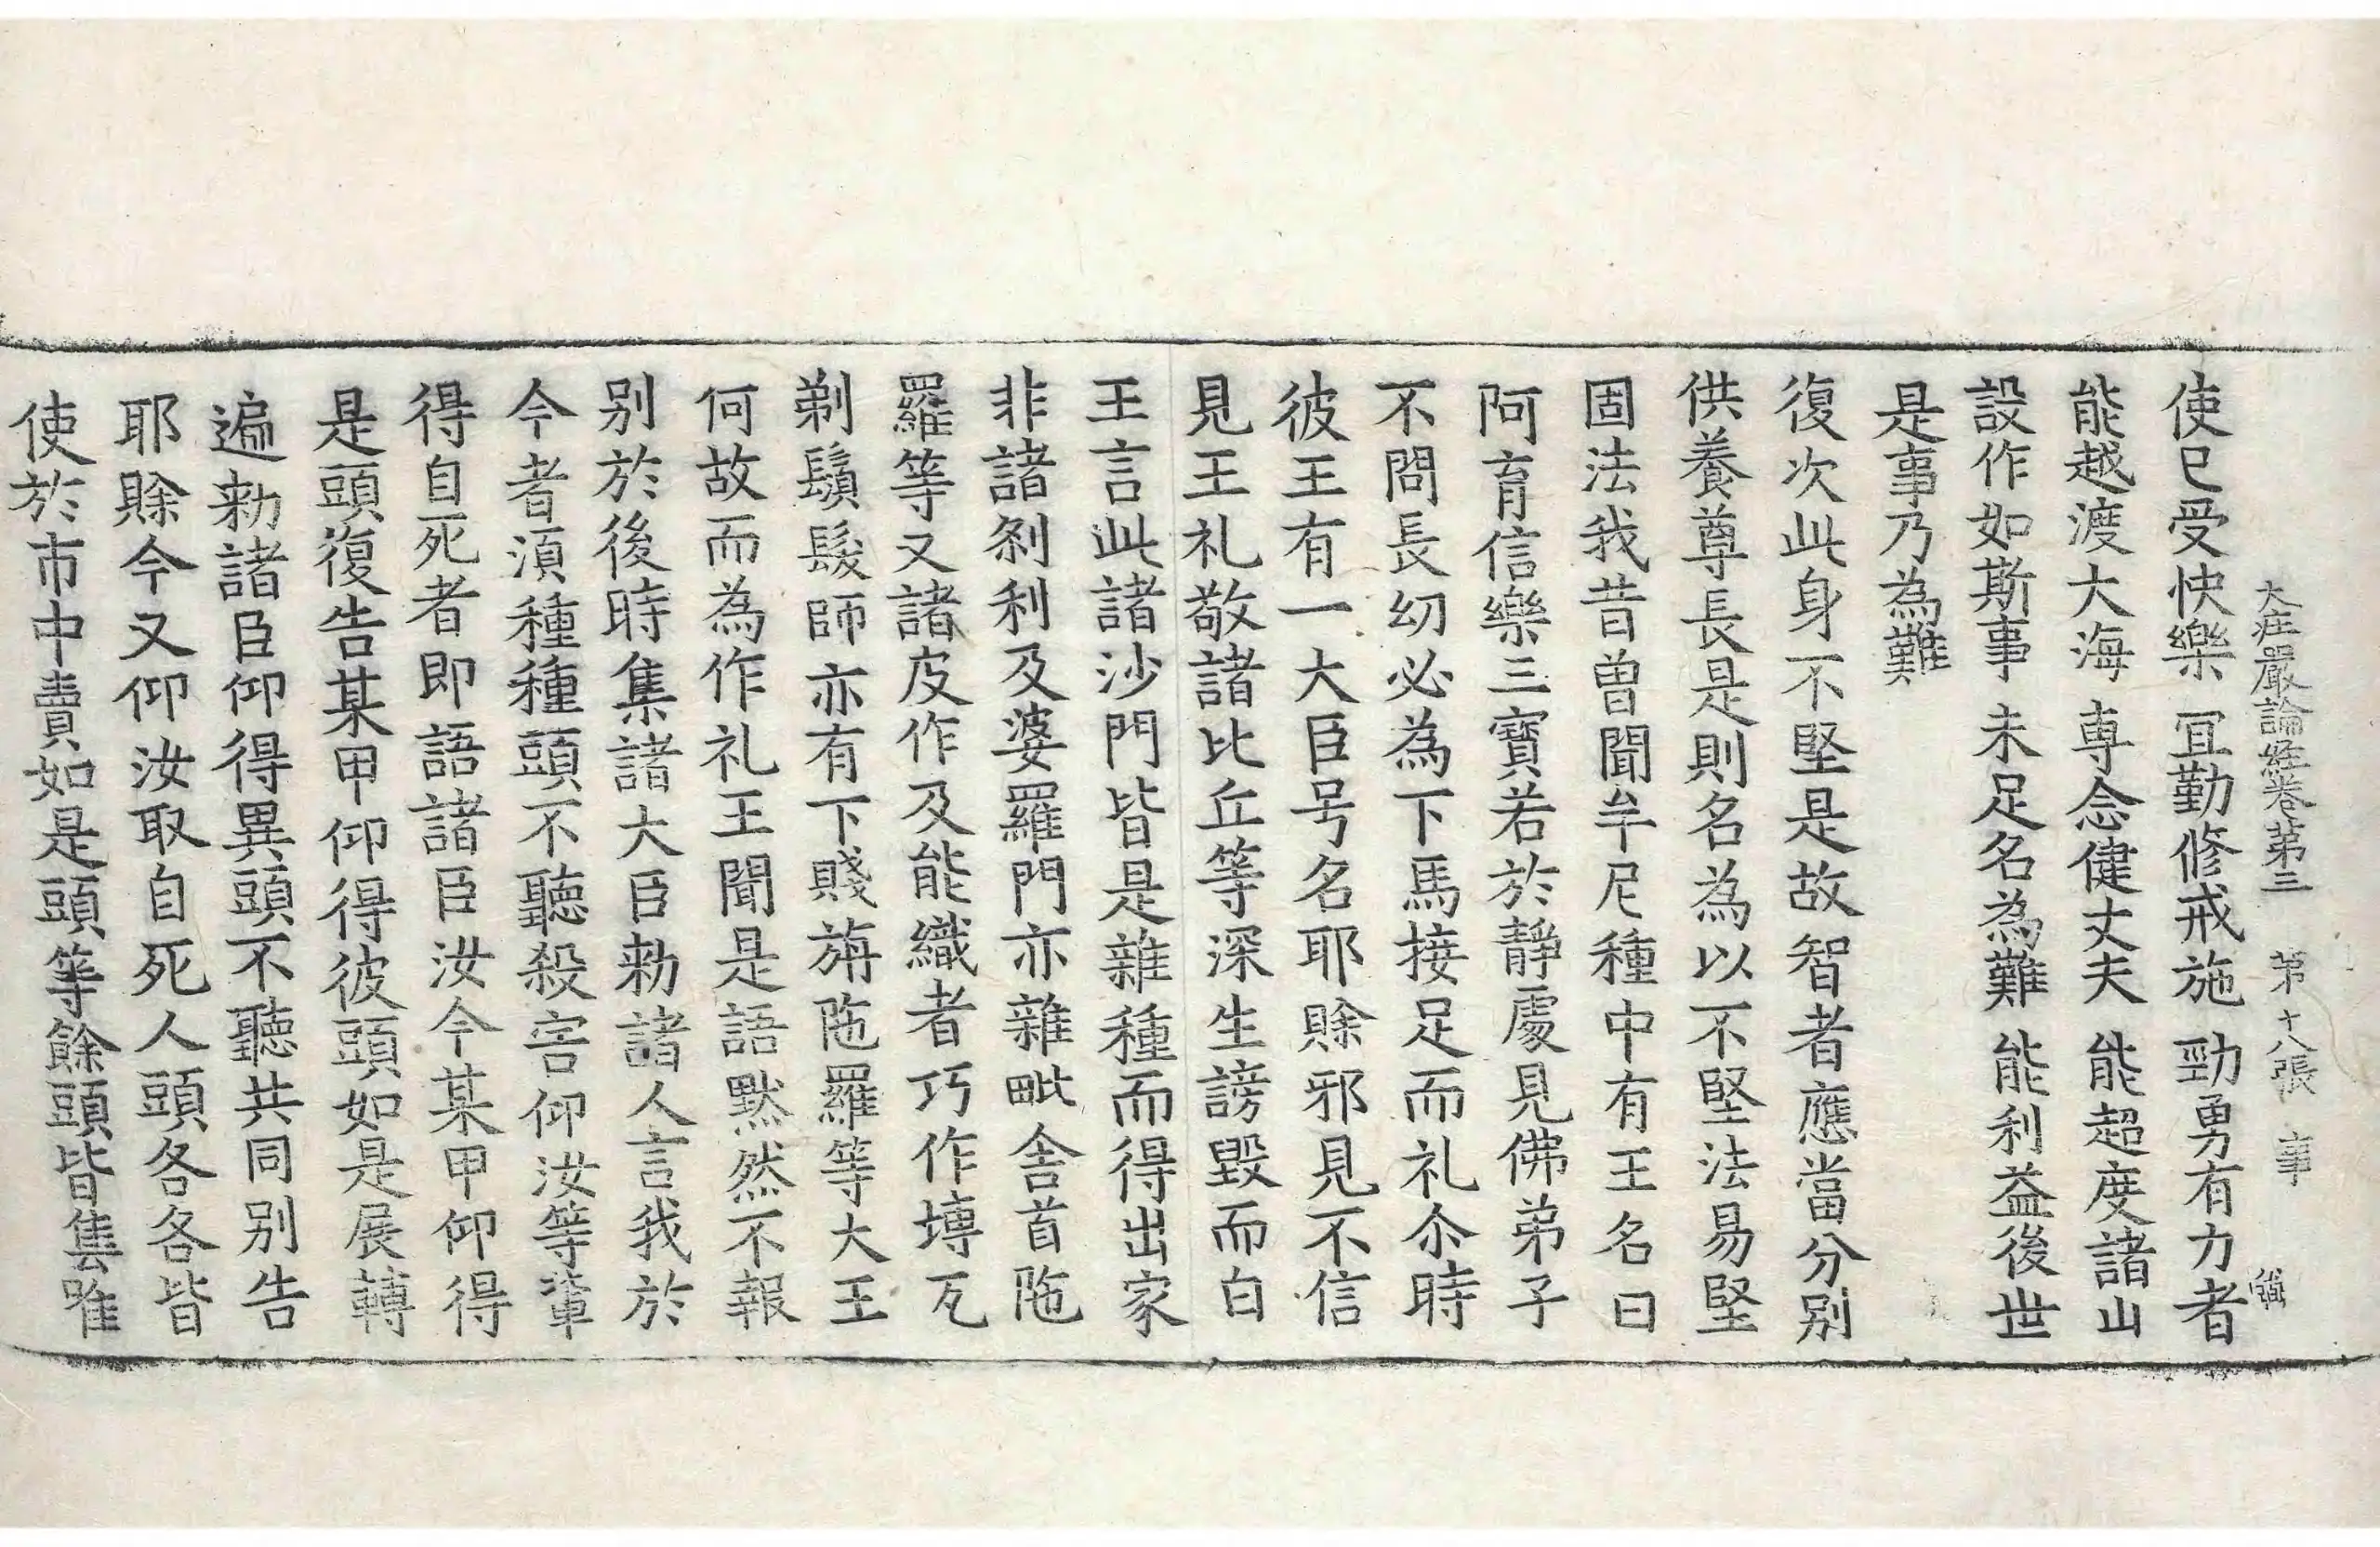 大庄嚴論經卷第三 第十八張 事
使已受快樂 冝勤修戒施 勁勇有力者
能越渡大海 専念健丈夫 能超度諸山
設作如斯事 未足名為難 能利益後世
是事乃為難
復次此身不堅是故智者應當分別
供養尊長是則名為以不堅法易堅
固法我昔曾聞牟尼種中有王名曰
阿育信樂三寶若於靜處見佛弟子
不問長㓜必為下馬接足而礼尒時
彼王有一大臣号名耶賖邪見不信
見王礼敬諸比丘等深生謗毀而白
王言此諸沙門皆是雜種而得出家
非諸刹利及婆羅門亦雜毗舍首陁
羅等又諸皮作及能織者巧作塼瓦
剃鬚髮師亦有下賤旃陁羅等大王
何故而為作礼王聞是語默然不報
別於後時集諸大臣勑諸人言我於
今者湏種種頭不聽殺害仰汝等軰
得自死者即語諸臣汝今某甲仰得
是頭復告某甲仰得彼頭如是展轉
遍勑諸臣仰得異頭不聽共同別告
耶賖今又仰汝取自死人頭各各皆
使於市中賣如是頭等餘頭皆集唯